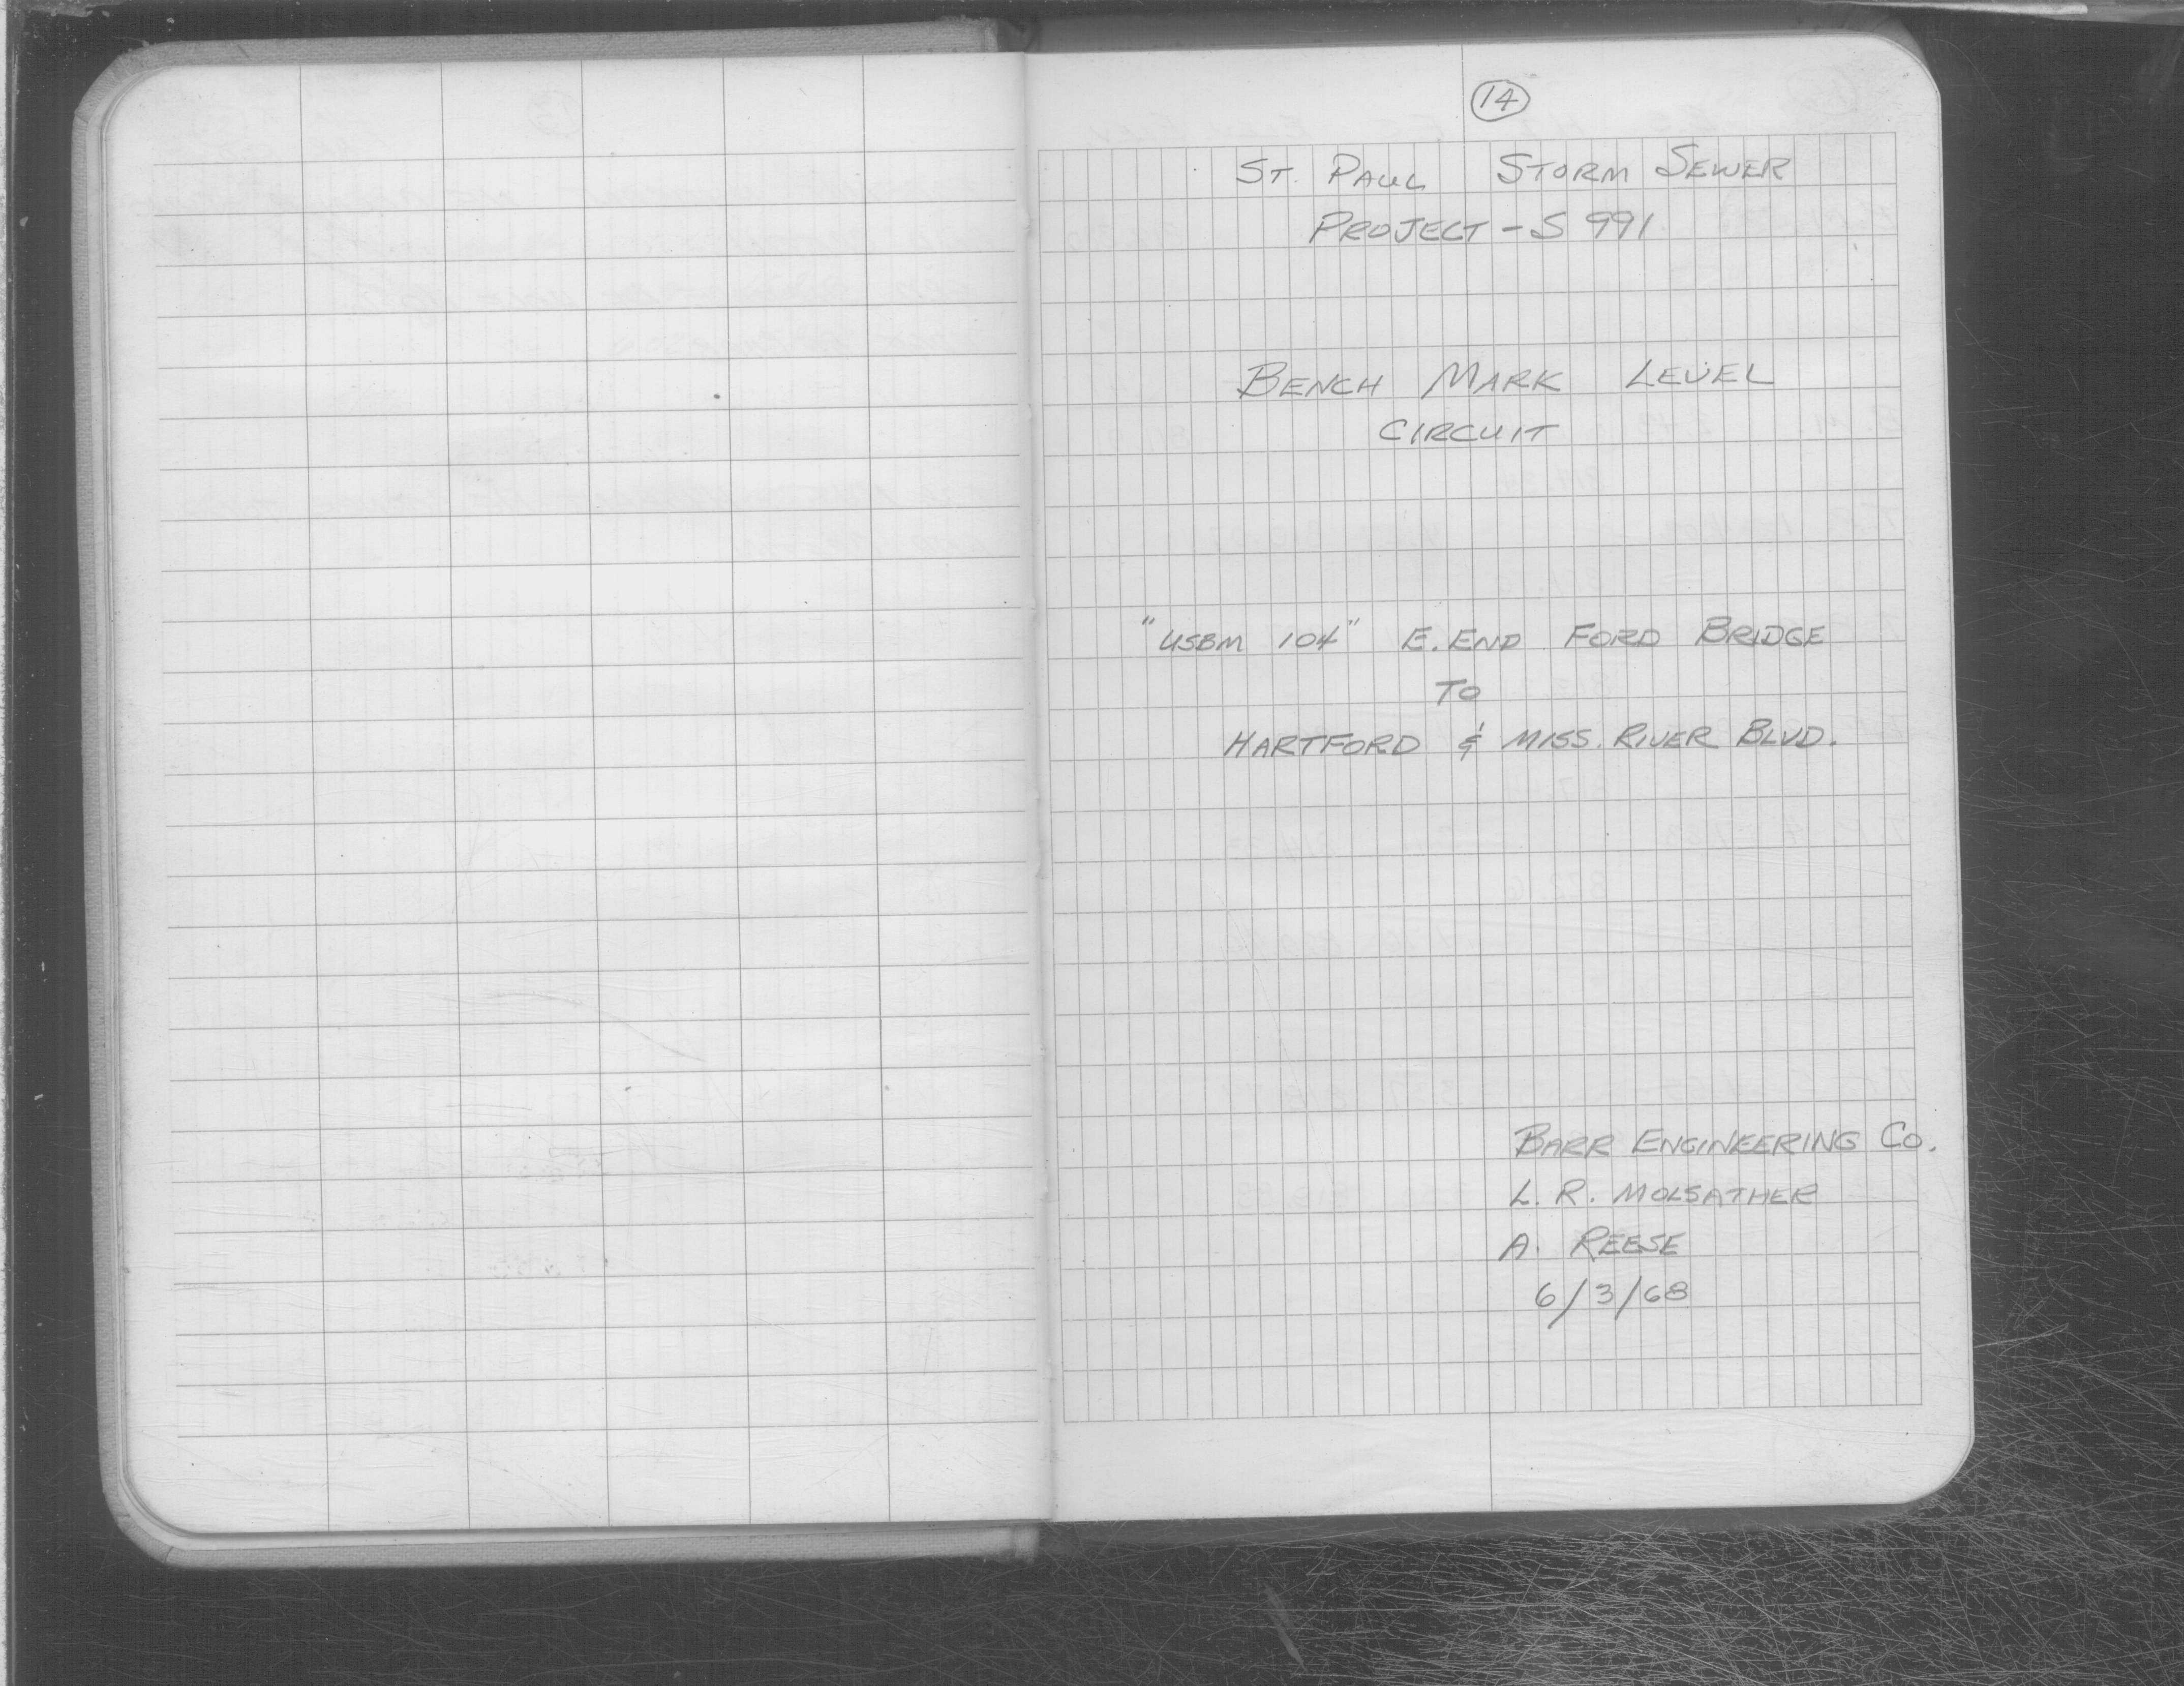 14
ST. PAUL STORM SEWER
PROJECT - S 991
BENCH MARK LEVEL
CIRCUIT
"USBM 104" E. END FORD BRIDGE
TO
HARTFORD & MISS. RIVER BLVD.
BARR ENGINEERING CO.
L. R. MOLSATHER
A. REESE
6/3/68